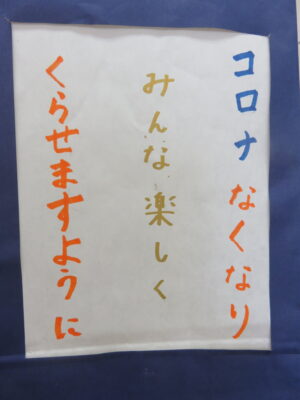 コロナなくなり
みんな楽しく
くらせますように